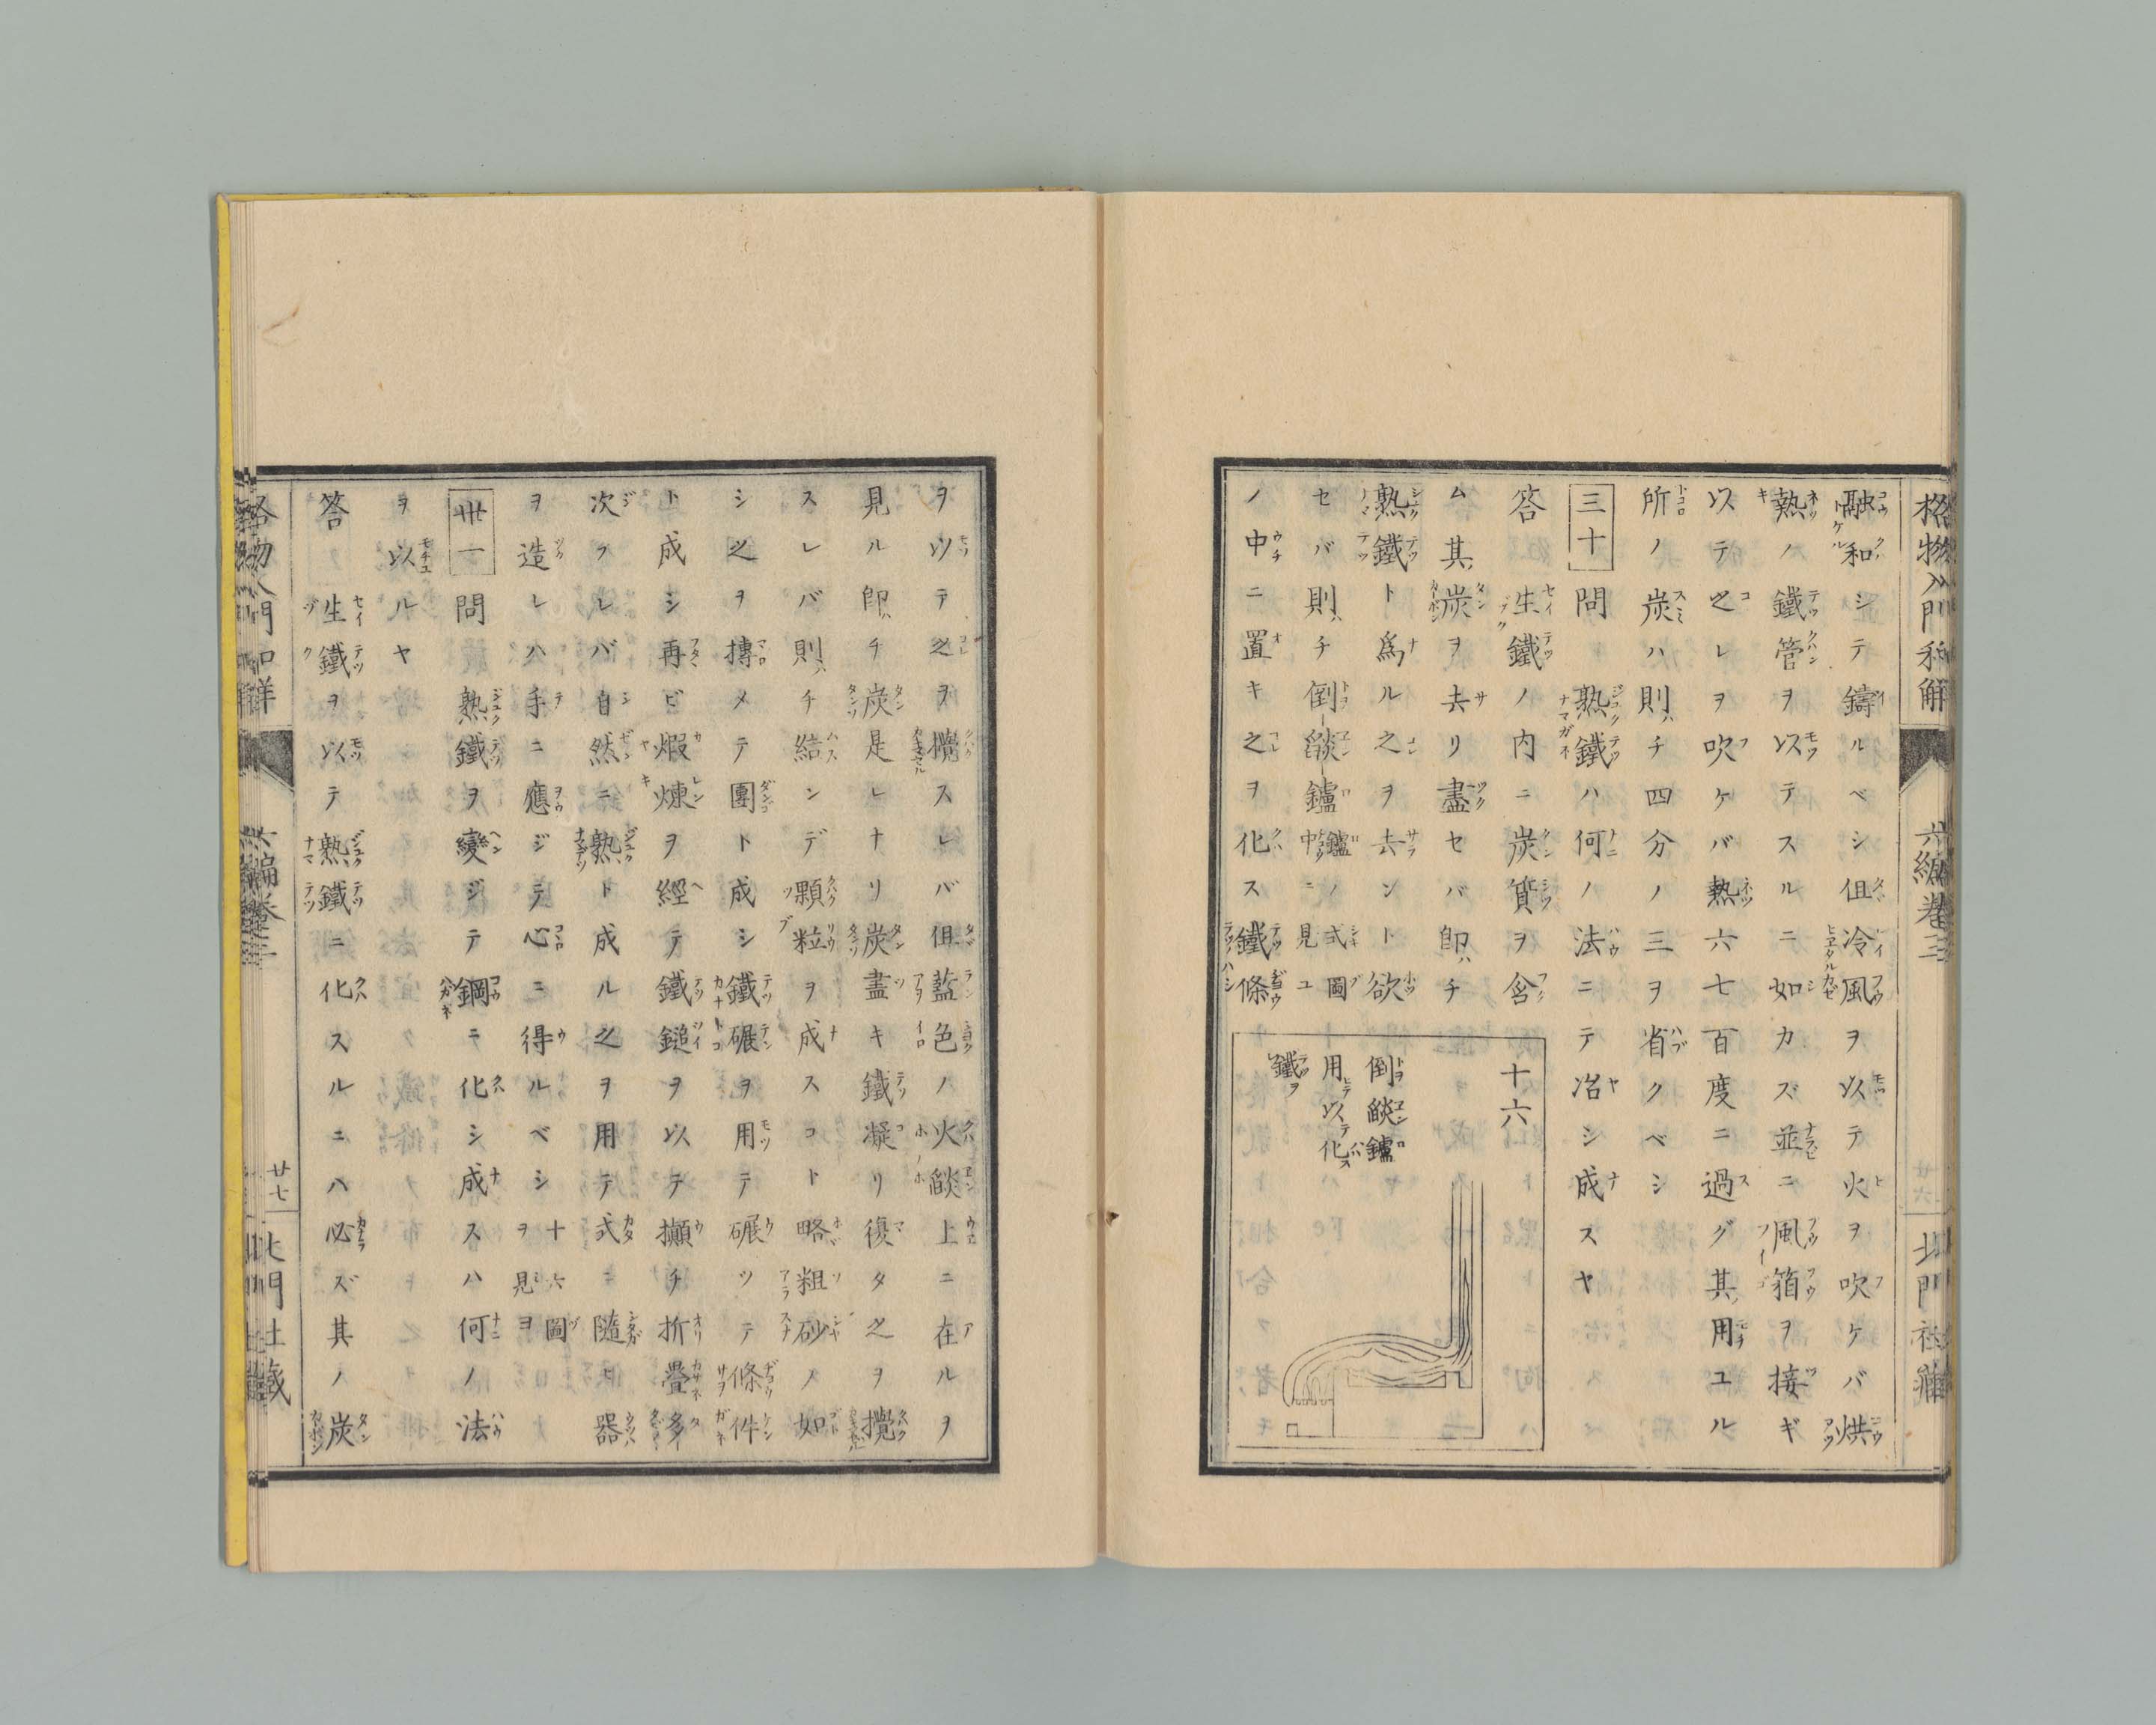 格物入門和解
六編卷三
廿六
北門社藏
融和シテ鑄ルベシ但冷風ヲ以テ火ヲ吹ケバ烘
熱ノ鐵管ヲ以テスルニ如カズ並ニ風箱ヲ接ギ
以テ之レヲ吹ケバ熱六七百度ニ過グ其用ユル
所ノ炭ハ則チ四分ノ三ヲ省クベシ
三十 問 熟鐵ハ何ノ法ニテ冶シ成スヤ
答 生鐵ノ內ニ炭質ヲ含
ム其炭ヲ去リ盡セバ卽チ
熟鐵ト爲ル之ヲ去ント欲
セバ則チ倒燄鑪鑪ノ式圖中ニ見ユ
ノ中ニ置キ之ヲ化ス鐵條
十六
倒燄鑪
用以テ化
鐵ヲ
ヲ以テ之ヲ攪スレバ但藍色ノ火燄上ニ在ルヲ
見ル卽チ炭是レナリ炭盡キ鐵凝リ復タ之ヲ攪
スレバ則チ結ンデ顆粒ヲ成スコト略粗砂ノ如
シ之ヲ摶メテ團ト成シ鐵碾ヲ用テ碾ツテ條件
ト成シ再ビ煆煉ヲ經テ鐵鎚ヲ以テ擷チ折疊多
次クレバ自然ニ熟ト成ル之ヲ用テ式ニ隨ヒ器
ヲ造レハ手ニ應ジテ心ニ得ルベシ十六圖ヲ見ヨ
丗一 問 熟鐵ヲ變ジテ鋼ニ化シ成スハ何ノ法
ヲ以ルヤ
答 生鐵ヲ以テ熟鐵ニ化スルニハ必ズ其ノ炭
格物入門和解
六編卷三
廿七
北門社藏